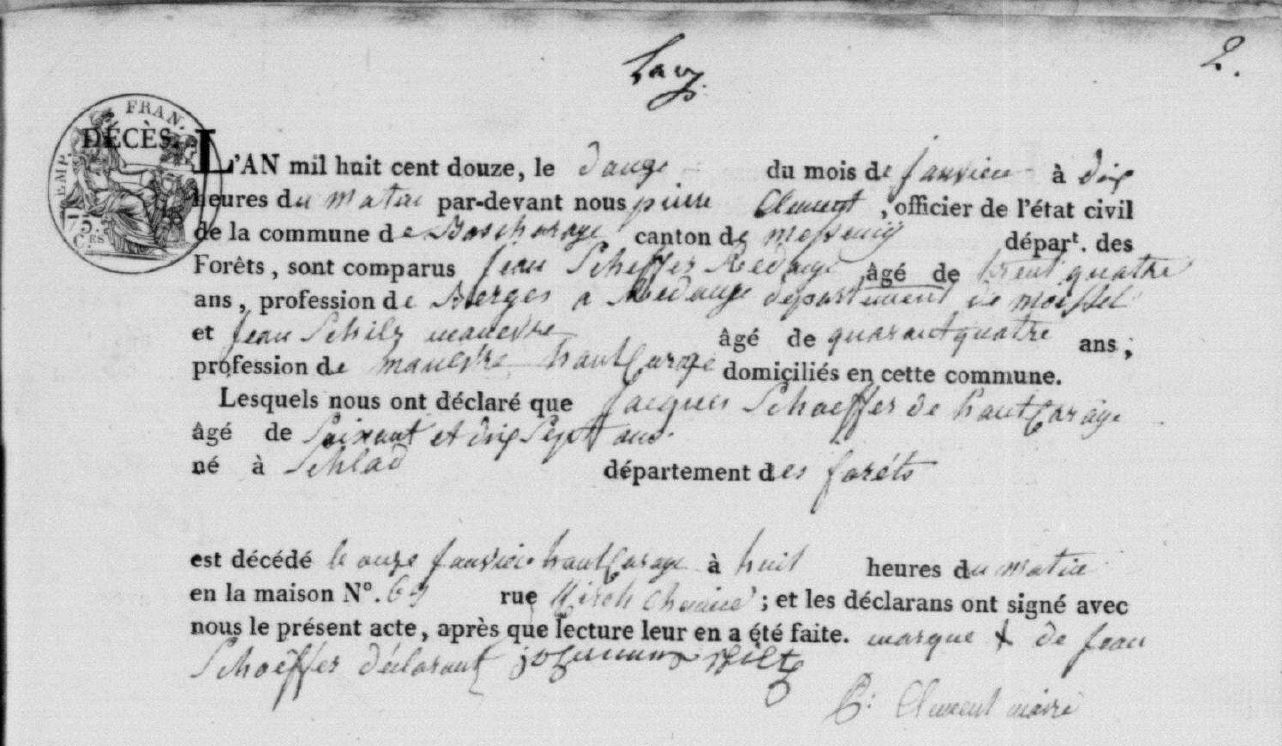 2.
EMP. FRAN.
75.
C.RS
DÉCÈS.
L'AN mil huit cent douze, le douze du mois de janvier à dix
heures du matin par-devant nous pierre Clement, officier de l'état civil
de la commune de Bascharage canton de messancy départ. des
Forêts, sont comparus Jean Scheffer Redange âgé de trent quatre
ans, profession de Berges a Redange département de mossel
et Jean Schilz manevre âgé de quarant quatre ans,
profession de manevre hautCarage domiciliés en cette commune.
Lesquels nous ont déclaré que Jacques Schoeffer de hautCarage
âgé de Soixant et dix Sept ans.
né à Schlad département des forêts
est décédé le onze janvier hautCarage à huit heures du matin
en la maison N°. 69 rue ; et les déclarans ont signé avec
nous le présent acte, après que lecture leur en a été faite. marque + de jean
Schoeffer déclarant
P: Clement maire